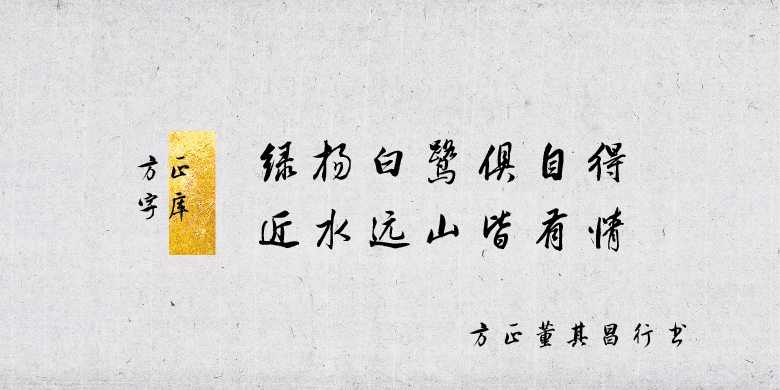 方正
字库
绿杨白鹭俱自得
近水远山皆有情
方正董其昌行书